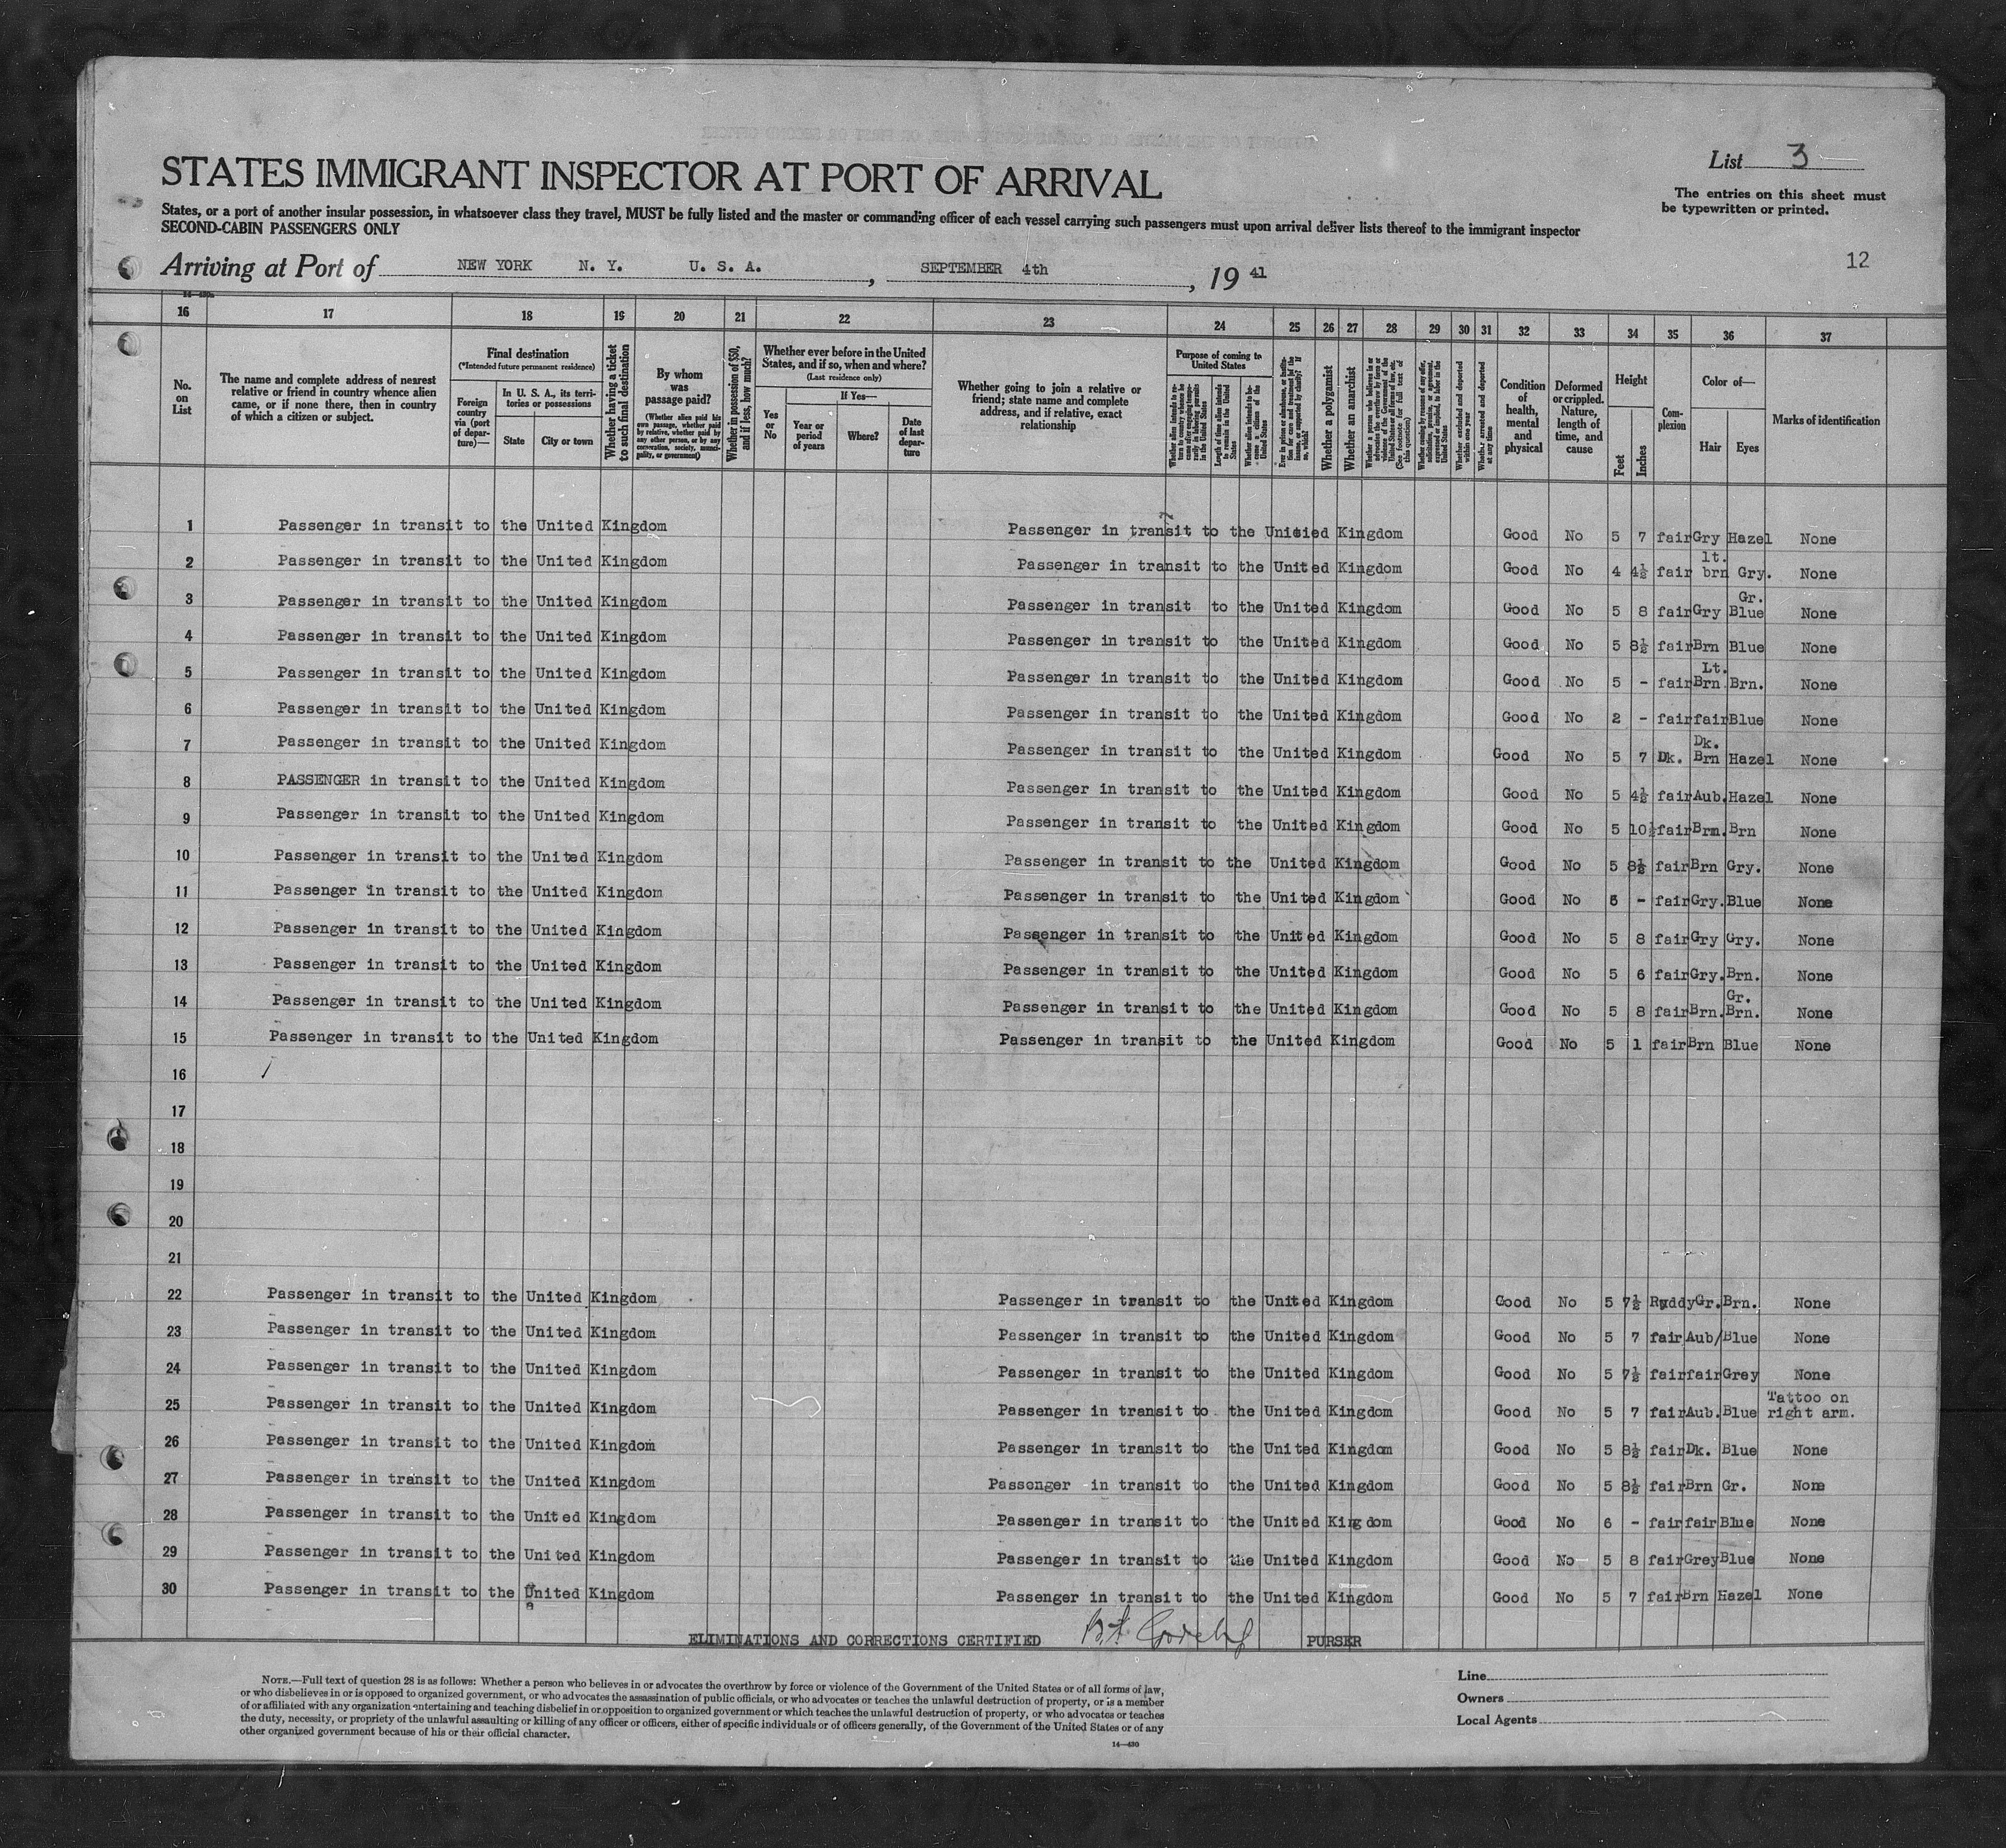 List 3
STATES IMMIGRANT INSPECTOR AT PORT OF ARRIVAL
The entries on this sheet must
be typewritten or printed.
States, or a port of another insular possession, in whatsoever class they travel, MUST be fully listed and the master or commanding officer of each vessel carrying such passengers must upon arrival deliver lists thereof to the immigrant inspector
SECOND-CABIN PASSENGERS ONLY
12
Arriving at Port of NEW YORK N. Y. U. S. A. , SEPTEMBER 4th , 19 41
16 17 18 19 20 21 22 23 24 25 26 27 28 29 30 31 32 33 34 35 36 37
No. on List
The name and complete address of nearest relative or friend in country whence alien came, or if none there, then in country of which a citizen or subject.
Final destination
(*Intended future permanent residence)
Foreign country via (port of departure)—
In U. S. A., its territories or possessions
State
City or town
Whether having a ticket to such final destination
By whom was passage paid?
(Whether alien paid his own passage, whether paid by relative, whether paid by any other person, or by any corporation, society, municipality, or government)
Whether in possession of $50, and if less, how much?
Whether ever before in the United States, and if so, when and where?
(Last residence only)
Yes or No
If Yes—
Year or period of years
Where?
Date of last departure
Whether going to join a relative or friend; state name and complete address, and if relative, exact relationship
Purpose of coming to United States
Length of time alien intends to remain in the United States
Whether alien intends to become a citizen of the United States
Whether a polygamist
Whether an anarchist
Condition of health, mental and physical
Deformed or crippled. Nature, length of time, and cause
Height
Feet
Inches
Complexion
Color of—
Hair
Eyes
Marks of identification
1 Passenger in transit to the United Kingdom Passenger in transit to the Unisied Kingdom Good No 5 7 fair Gry Hazel None
2 Passenger in transit to the United Kingdom Passenger in transit to the United Kingdom Good No 4 4½ fair lt. brn Gry. None
3 Passenger in transit to the United Kingdom Passenger in transit to the United Kingdom Good No 5 8 fair Gry Gr. Blue None
4 Passenger in transit to the United Kingdom Passenger in transit to the United Kingdom Good No 5 8½ fair Brn Blue None
5 Passenger in transit to the United Kingdom Passenger in transit to the United Kingdom Good No 5 - fair Lt. Brn Brn. None
6 Passenger in transit to the United Kingdom Passenger in transit to the United Kingdom Good No 2 - fair fair Blue None
7 Passenger in transit to the United Kingdom Passenger in transit to the United Kingdom Good No 5 7 Dk. Dk. Brn Hazel None
8 PASSENGER in transit to the United Kingdom Passenger in transit to the United Kingdom Good No 5 4½ fair Aub. Hazel None
9 Passenger in transit to the United Kingdom Passenger in transit to the United Kingdom Good No 5 10½ fair Brn. Brn None
10 Passenger in transit to the United Kingdom Passenger in transit to the United Kingdom Good No 5 8½ fair Brn Gry. None
11 Passenger in transit to the United Kingdom Passenger in transit to the United Kingdom Good No 5 - fair Gry. Blue None
12 Passenger in transit to the United Kingdom Passenger in transit to the United Kingdom Good No 5 8 fair Gry Gry. None
13 Passenger in transit to the United Kingdom Passenger in transit to the United Kingdom Good No 5 6 fair Gry. Brn. None
14 Passenger in transit to the United Kingdom Passenger in transit to the United Kingdom Good No 5 8 fair Brn. Gr. Brn. None
15 Passenger in transit to the United Kingdom Passenger in transit to the United Kingdom Good No 5 1 fair Brn Blue None
16
17
18
19
20
21
22 Passenger in transit to the United Kingdom Passenger in transit to the United Kingdom Good No 5 7½ Ruddy Gr. Brn. None
23 Passenger in transit to the United Kingdom Passenger in transit to the United Kingdom Good No 5 7 fair Aub/ Blue None
24 Passenger in transit to the United Kingdom Passenger in transit to the United Kingdom Good No 5 7½ fair fair Grey None
25 Passenger in transit to the United Kingdom Passenger in transit to the United Kingdom Good No 5 7 fair Aub. Blue Tattoo on right arm.
26 Passenger in transit to the United Kingdom Passenger in transit to the United Kingdom Good No 5 8½ fair Dk. Blue None
27 Passenger in transit to the United Kingdom Passenger in transit to the United Kingdom Good No 5 8½ fair Brn Gr. None
28 Passenger in transit to the United Kingdom Passenger in transit to the United Kingdom Good No 6 - fair fair Blue None
29 Passenger in transit to the United Kingdom Passenger in transit to the United Kingdom Good No 5 8 fair Grey Blue None
30 Passenger in transit to the United Kingdom Passenger in transit to the United Kingdom Good No 5 7 fair Brn Hazel None
ELIMINATIONS AND CORRECTIONS CERTIFIED PURSER
NOTE.—Full text of question 28 is as follows: Whether a person who believes in or advocates the overthrow by force or violence of the Government of the United States or of all forms of law,
or who disbelieves in or is opposed to organized government, or who advocates the assassination of public officials, or who advocates or teaches the unlawful destruction of property, or is a member
of or affiliated with any organization entertaining and teaching disbelief in or opposition to organized government or which teaches the unlawful destruction of property, or who advocates or teaches
the duty, necessity, or propriety of the unlawful assaulting or killing of any officer or officers, either of specific individuals or of officers generally, of the Government of the United States or of any
other organized government because of his or their official character.
14—430
Line
Owners
Local Agents